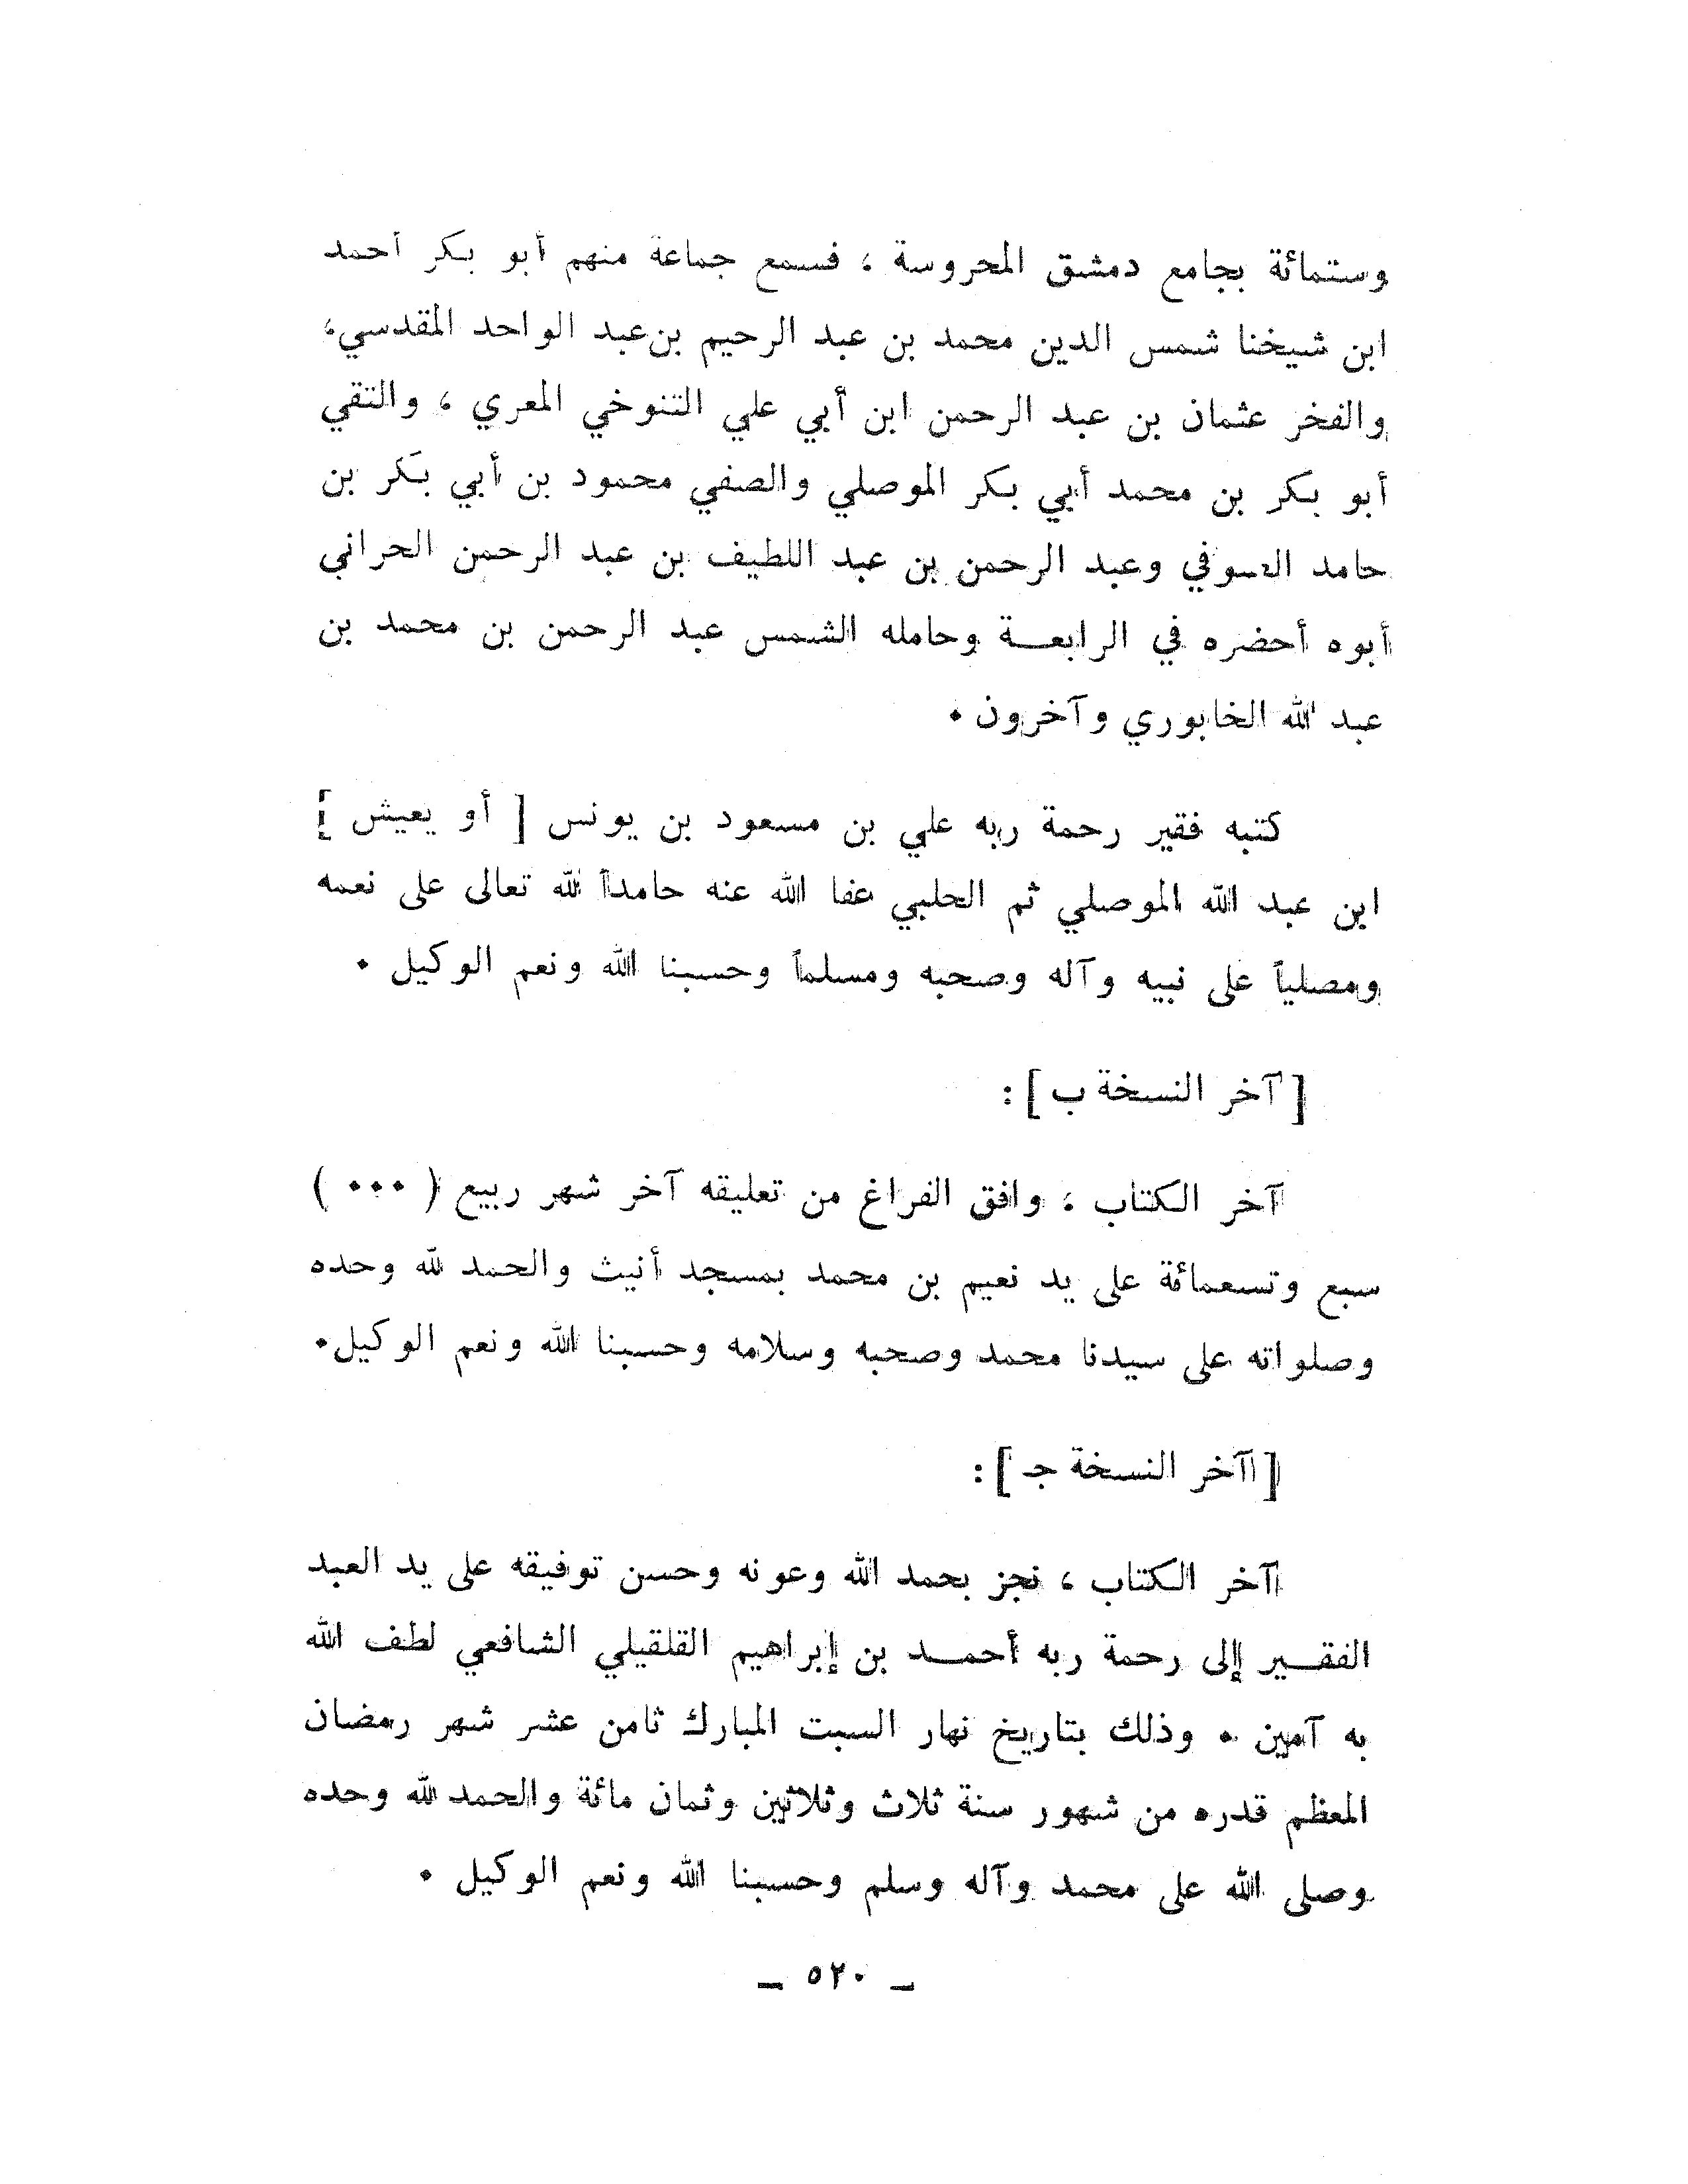 وستمائة بجامع دمشق المحروسة ، فسمع جماعة منهم أبو بكر أحمد
ابن شيخنا شمس الدين محمد بن عبد الرحيم بن عبد الواحد المقدسي،
والفخر عثمان بن عبد الرحمن ابن أبي علي التنوخي المعري ، والتقي
أبو بكر بن محمد أبي بكر الموصلي والصفي محمود بن أبي بكر بن
حامد الصوفي وعبد الرحمن بن عبد اللطيف بن عبد الرحمن الحراني
أبوه أحضره في الرابعة وحامله الشمس عبد الرحمن بن محمد بن
عبد الله الخابوري وآخرون .
كتبه فقير رحمة ربه علي بن مسعود بن يونس [ أو يعيش ]
ابن عبد الله الموصلي ثم الحلبي عفا الله عنه حامداً لله تعالى على نعمه
ومصلياً على نبيه وآله وصحبه ومسلماً وحسبنا الله ونعم الوكيل .
[ آخر النسخة ب ] :
آخر الكتاب ، وافق الفراغ من تعليقه آخر شهر ربيع ( ... )
سبع وتسعمائة على يد نعيم بن محمد بمسجد أنيث والحمد لله وحده
وصلواته على سيدنا محمد وصحبه وسلامه وحسبنا الله ونعم الوكيل.
[ آخر النسخة جـ ] :
آخر الكتاب ، نجز بحمد الله وعونه وحسن توفيقه على يد العبد
الفقير إلى رحمة ربه أحمد بن إبراهيم القلقيلي الشافعي لطف الله
به آمين . وذلك بتاريخ نهار السبت المبارك ثامن عشر شهر رمضان
المعظم قدره من شهور سنة ثلاث وثلاثين وثمان مائة والحمد لله وحده
وصلى الله على محمد وآله وسلم وحسبنا الله ونعم الوكيل .
ـ ٥٢٠ ـ